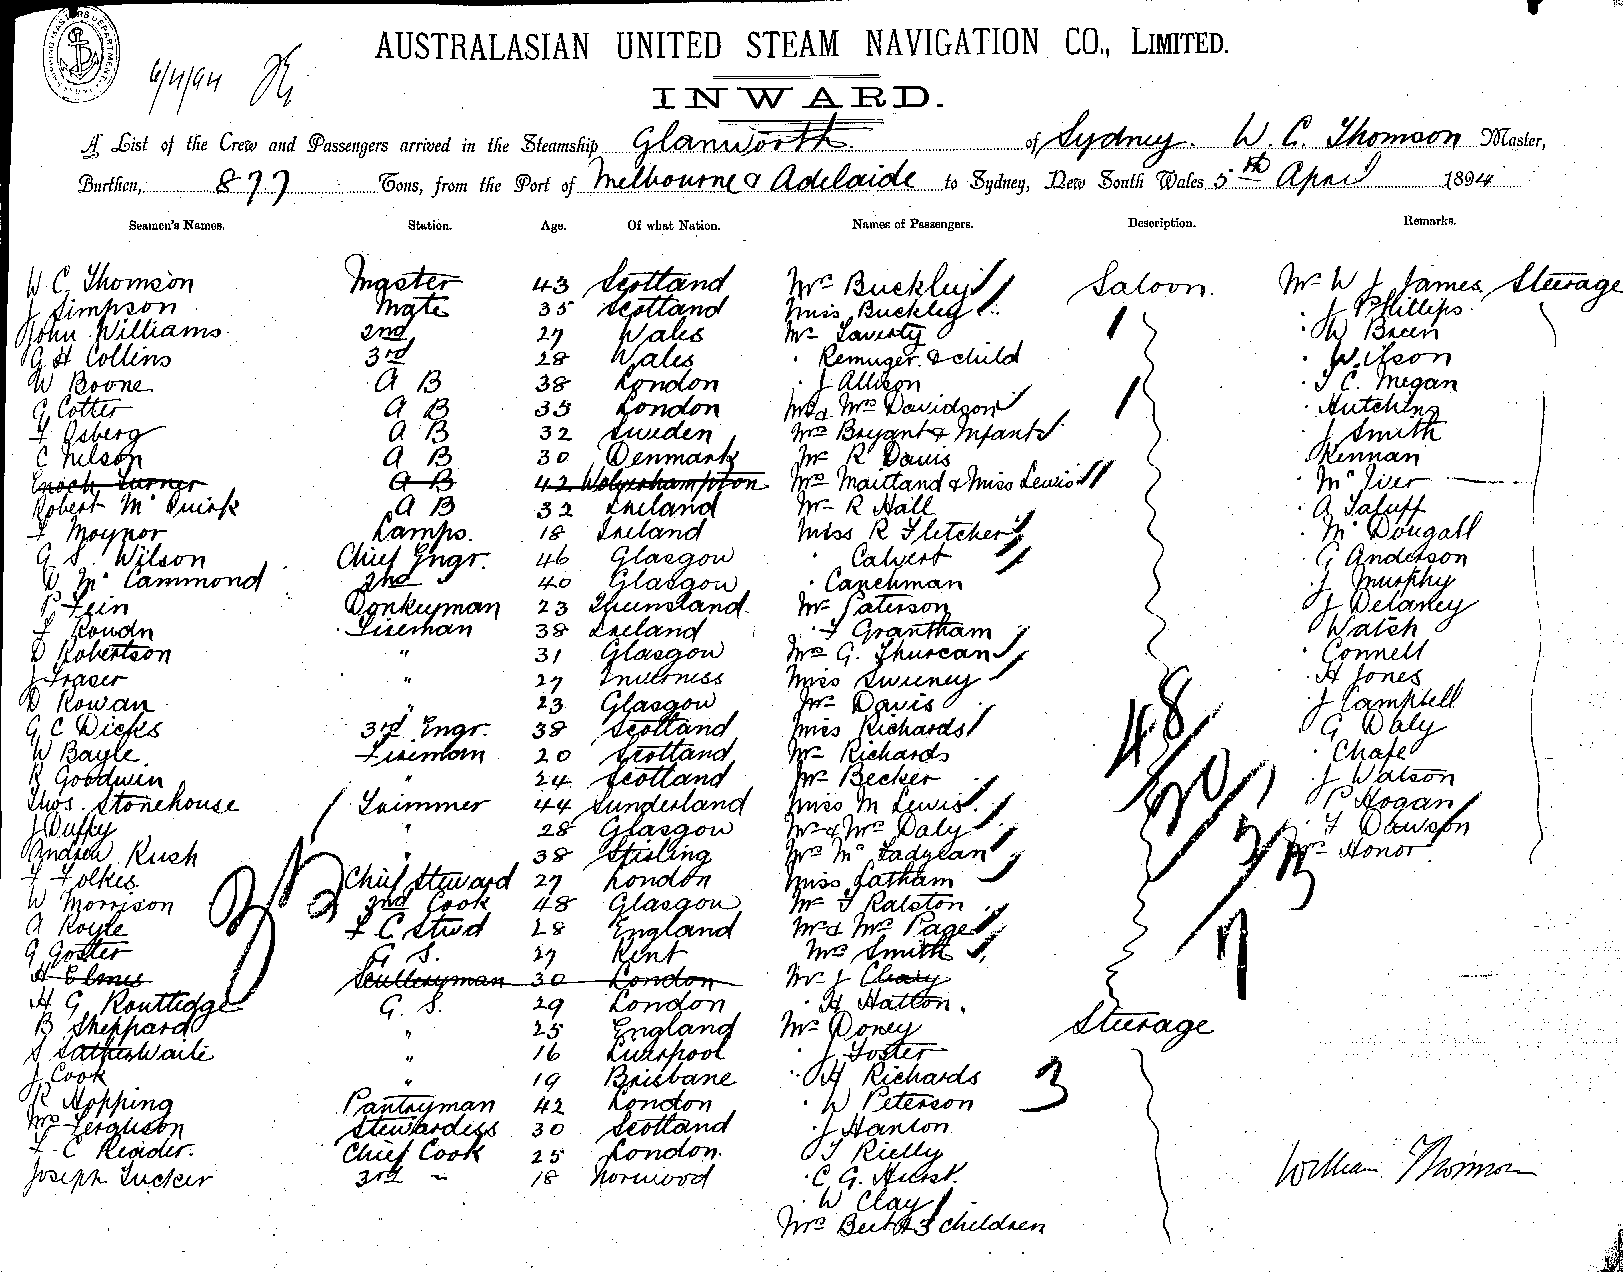 6/4/94
AUSTRALASIAN UNITED STEAM NAVIGATION CO., LIMITED.
INWARD.
A List of the Crew and Passengers arrived in the Steamship Glanworth of Sydney. W. C. Thomson Master,
Burthen, 877 Tons, from the Port of Melbourne & Adelaide to Sydney, New South Wales 5th April 1894
Seamen's Names. Station. Age. Of what Nation. Names of Passengers. Description. Remarks.
W C Thomson Master 43 Scotland Mrs Buckley Saloon. Mr W J James Steerage
J Simpson Mate 35 Scotland Miss Buckley " J Phillips
John Williams 2nd 27 Wales Mr Laverty W Breen
G H Collins 3rd 28 Wales Remuger & child Wilson
W Boone A B 38 London J Allison T C Megan
G Cotter A B 35 London Mr & Mrs Davidson Hutchins
F Osberg A B 32 Sweden Mrs Bryant & Infant J Smith
C Nelson A B 30 Denmark Mr R Davis Kennan
Enoch Turner A B 42 Wolverhampton Mrs Maitland & Miss Lewis McIver
Robert McQuirk A B 32 Ireland Mr R Hall A
F Maynor Lamps. 18 Ireland Miss R Fletcher McDougall
G S Wilson Chief Engr. 46 Glasgow Calvert G Anderson
D McCammond 2nd 40 Glasgow Canchman J Murphy
P Fein Donkeyman 23 Queensland Mr Paterson J Delaney
F Roudn Fireman 38 Ireland F Grantham Walsh
D Robertson " 31 Glasgow Mrs G. Thurcan Connell
J Fraser " 27 Inverness Miss Sweeney H Jones
D Rowan " 23 Glasgow Mr Davis J Campbell
G C Dicks 3rd Engr. 38 Scotland Miss Richards G Daly
W Bayle Fireman 20 Scotland Mr Richards Chafe
R Goodwin " 24 Scotland Mr Becker J Watson
Thos. Stonehouse Trimmer 44 Sunderland Miss M Lewis P Hogan
J Duffy " 28 Glasgow Mr & Mrs Daly F Dawson
Andrew Rush " 38 Stirling Mrs McFadyean Mr Honor
F Folkes Chief Steward 27 London Miss Latham
W Morrison 2nd Cook 48 Glasgow Mr T Ralston
A Royle F C Stwd 28 England Mr & Mrs Page
G Goster G S. 27 Kent Mrs Smith
H Elmes Sculleryman 30 London Mr J Cleary
H G Routtidge G. S. 29 London H Hatton.
B Sheppard " 25 England Mr Doney Steerage
S SatherWaite " 16 Liverpool J Foster
J Cook " 19 Brisbane H Richards
R Hopping Pantryman 42 London W Peterson
Mrs Ferguson Stewardess 30 Scotland J Hanlon
F C Reader. Chief Cook 25 London T Rielly
Joseph Tucker 3rd " 18 Norwood C G. Hurst.
W Clay
Mrs Bert & 3 children
48
3
William Thomson